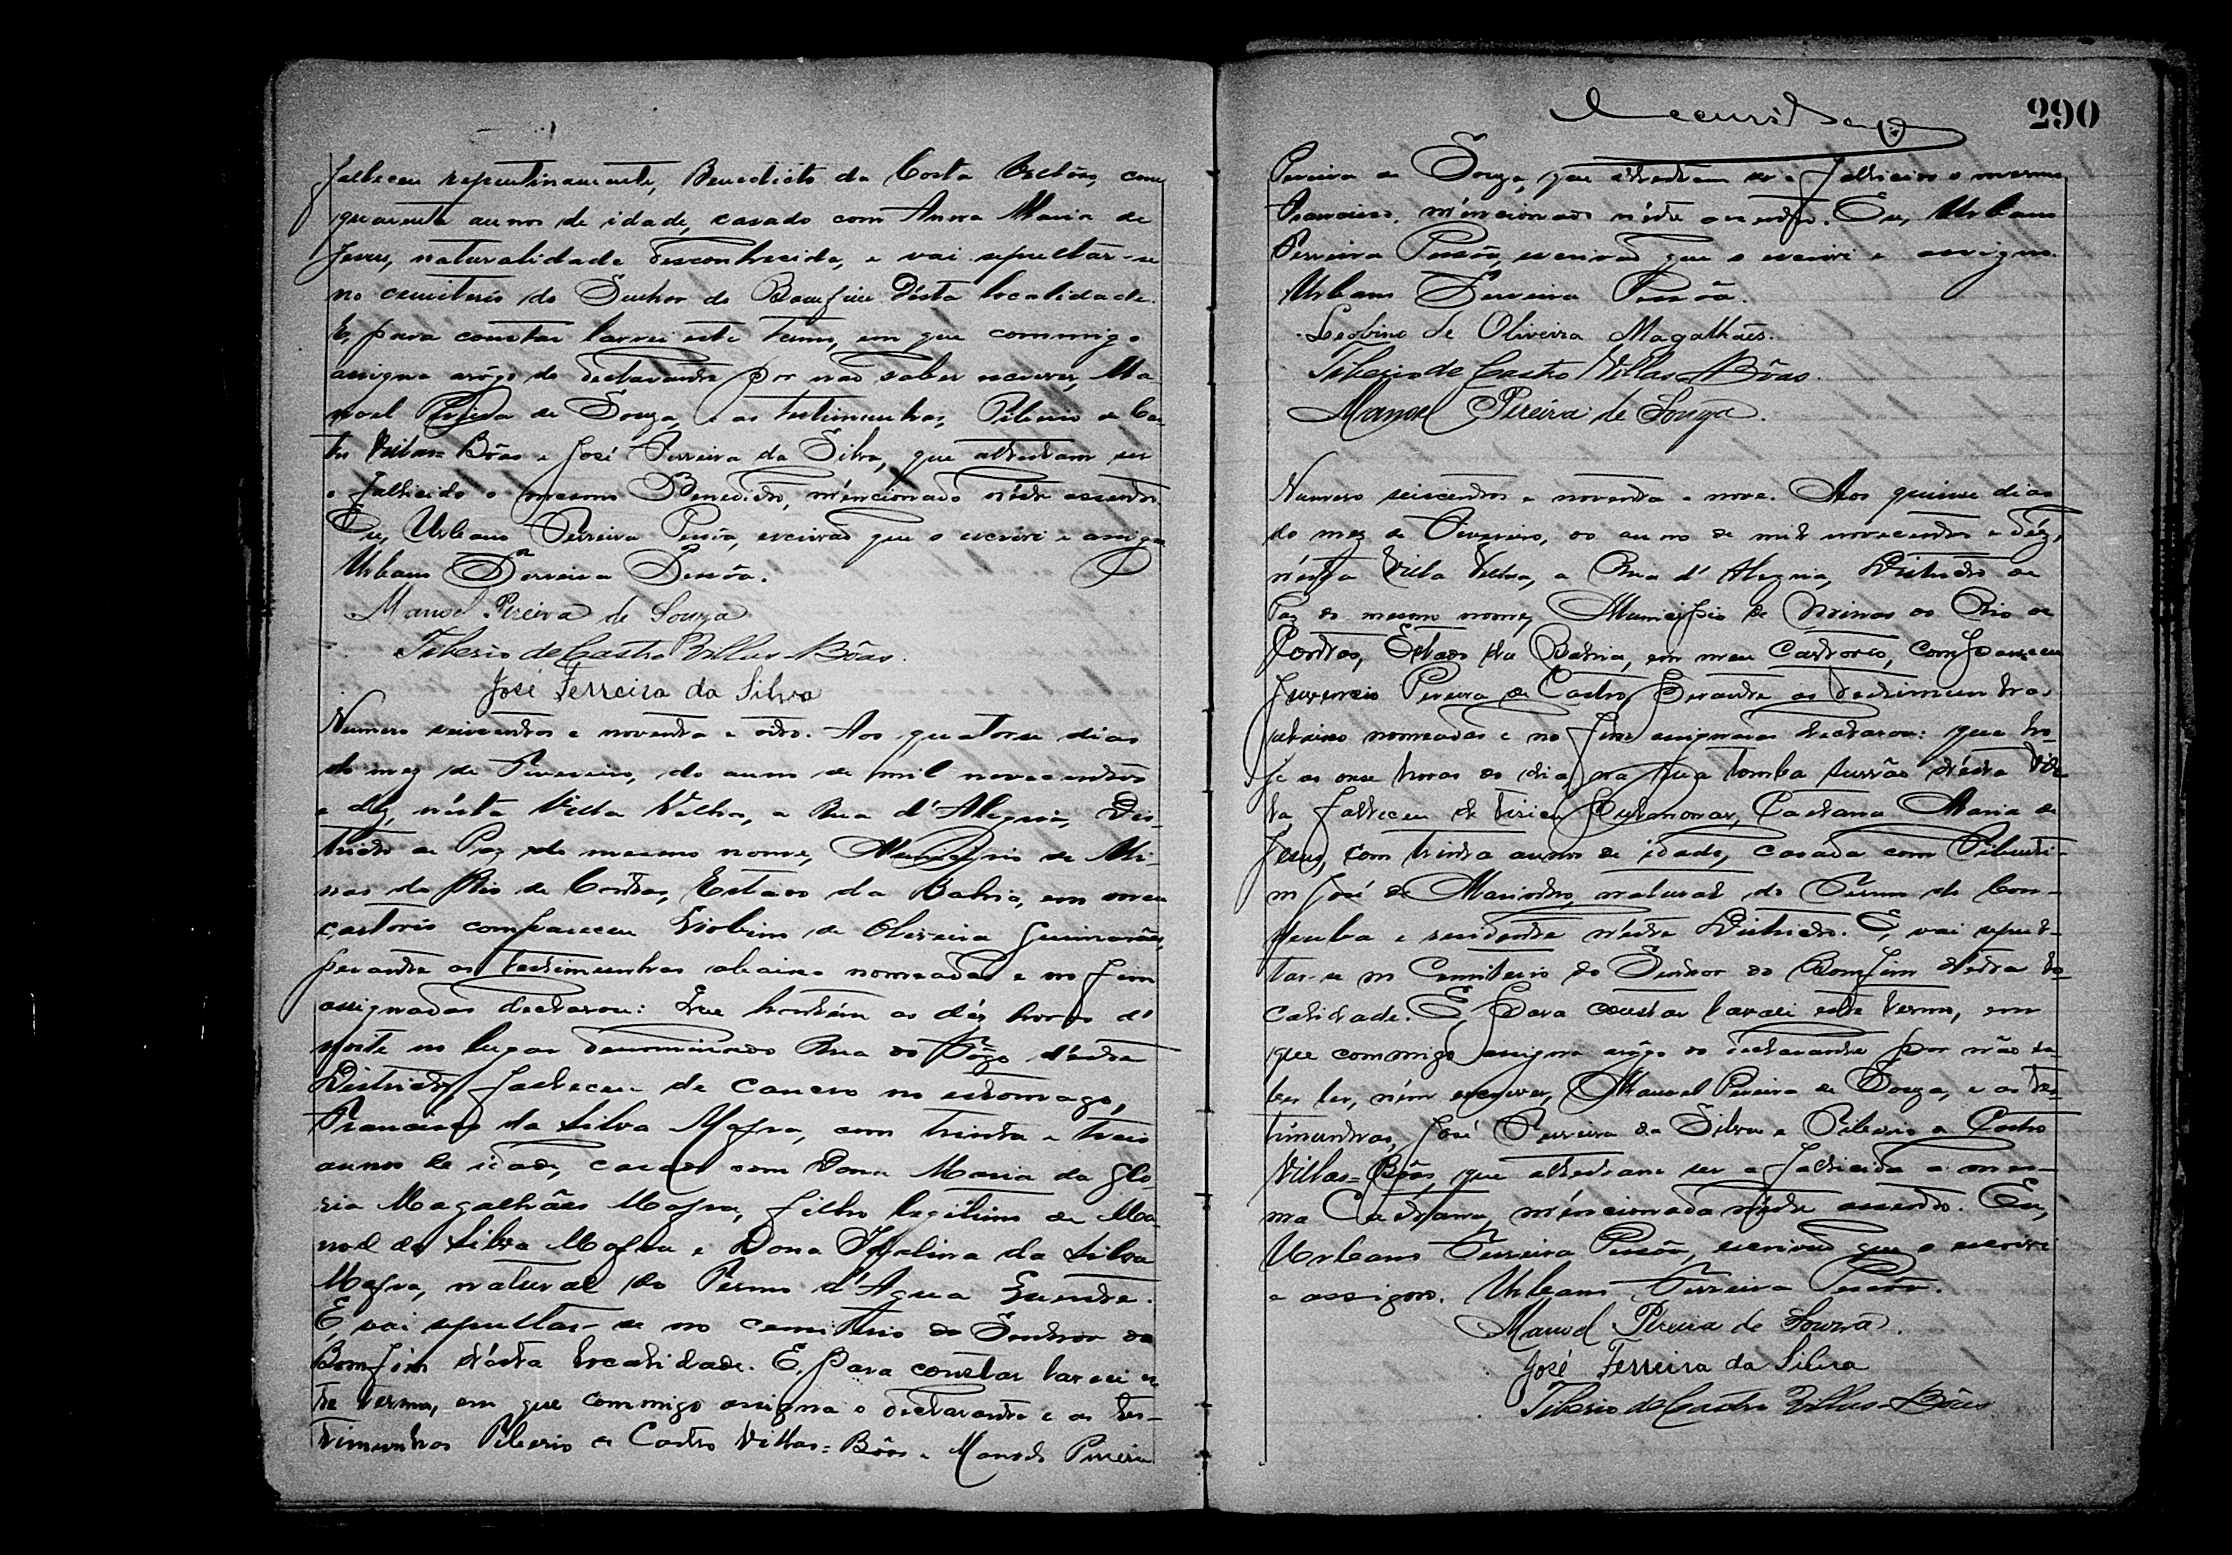 falleceu repentinamente, Benedicto da Costa, com
quarenta annos de idade, casado com Anna Maria de
Jesus, naturalidade desconhecida, e vai sepultar-se
no cemiterio do Senhor do Bomfim d'ésta localidade.
E, para constar lavrei este termo, em que commigo
assigna arôgo do declarante por não saber escrever, Ma
noel Pereira de Souza, e as testimunhas, Tiberio de Cas-
tro Villas=Bôas e José Ferreira da Silva, que attestam ser
o fallecido o mesmo Benedicto, méncionado n'éste assento.
Eu, Urbano Ferreira Pessôa, escrivão que o escrevi e assigno
Urbano Ferreira Pessôa.
Manoel Pereira de Souza
Tiberio de Castro Villas-Bôas.
José Ferreira da Silva
Numero seiscentos e noventa e oito. Aos quatorse dias
do mez de Fevereiro, do anno de mil novecentos
e déz, n'ésta Villa Velha, a Rua d'Alegria, Dis-
tricto de Paz do mesmo nome, Municipio de Mi
nas do Rio de Contas, Estado da Bahia, em meu
cartorio compareceu Leobino de Oliveira Guimarães,
perante as testimunhas abaixo nomeadas e no fim
assignadas declarou: Que hontém as déz horas d'
noite no lugar denominado Rua do Fôgo d'éste
Districto, falleceu de cancro no estomago,
Francisco da Silva Mafra, com trinta e treis
annos de idade, casado com Dona Maria da Glo
ria Magalhães Mafra, filho legitimo de Ma
noel da Silva Mafra e Dona da Silva
Mafra, natural do Termo d'Agua Quente.
E, vai sepultar-se no cemiterio do Senhor do
Bomfim d'ésta localidade. E, para constar lavrei es
te termo, em que commigo assigna o declarante e as tes-
timunhas Tiberio de Castro Villas=Bôas e Manoel Pereira
290
Pereira de Souza, que attestam ser o fallecido o mesmo
Francisco, méncionado n'éste assento. Eu, Urbano
Ferreira Pessôa, escrivão que o escrevi e assigno.
Urbano Ferreira Pessôa.
Leobino de Oliveira Magalhães.
Tiberio de Castro Villas-Bôas.
Manoel Pereira de Souza.
Numero seiscentos e noventa e nove. Aos quinse dias
do mez de Fevereiro, do anno de mil novecentos e déz,
n'ésta Villa Velha, a Rua d'Alegria, Districto de
Paz do mesmo nome, Municipio de Minas do Rio de
Contas, Estado da Bahia, em meu cartorio, compareceu
Juvencio Pereira de Castro, perante as testimunhas
abaixo nomeadas e no fim assignadas declarou: que ho-
je as onse horas do dia, na Rua d'ésta Vil-
la, falleceu de tisica Pulmonar, Caetana Maria de
Jesus, com trinta annos de idade, casada com Tiburti-
no José de, natural do Termo de Con-
deuba e residente n'éste Districto. E, vai sepul-
tar-se no Cemiterio do Senhor do Bomfim d'ésta lo-
calidade. E, para constar lavrei este termo, em
que commigo assigna arôgo do declarante por não sa-
ber ler, ném escrever, Manoel Pereira de Souza, e as tes-
timunhas, José Ferreira da Silva e Tiberio de Castro
Villas=Bôas, que attestam ser a fallecida a mes-
ma Caetana, méncionada n'éste assento. Eu,
Urbano Ferreira Pessôa, escrivão que o escrevi
e assigno. Urbano Ferreira Pessôa.
Manoel Pereira de Souza.
José Ferreira da Silva
Tiberio de Castro Villas-Bôas